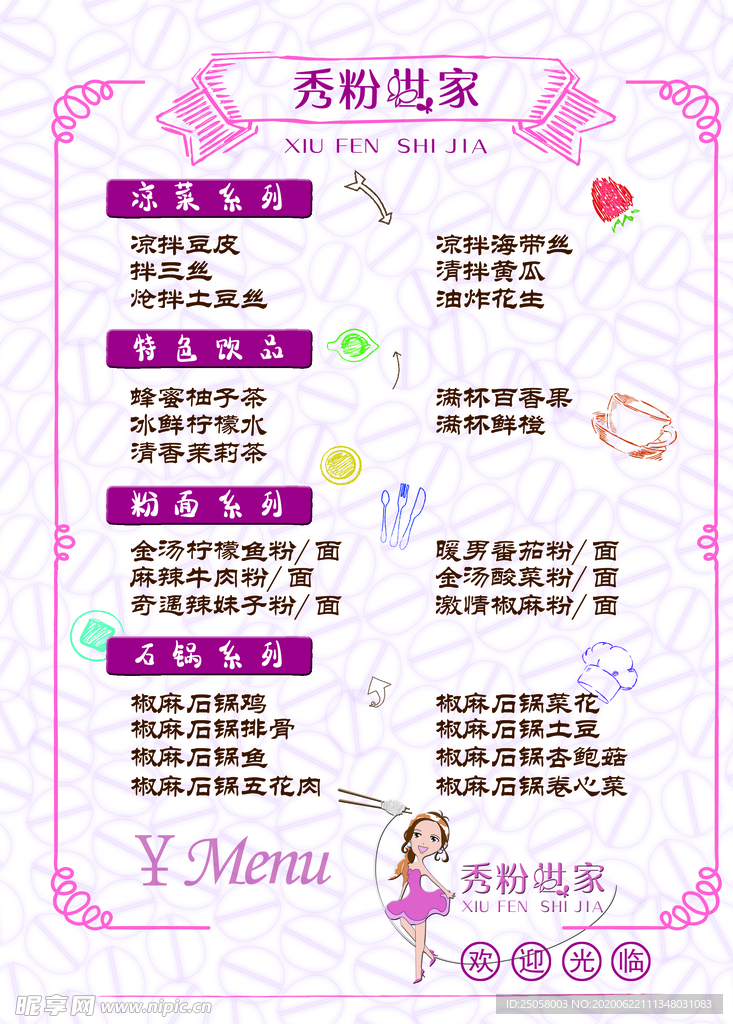 秀粉世家
XIU FEN SHI JIA
凉菜系列
凉拌豆皮
凉拌海带丝
拌三丝
清拌黄瓜
炝拌土豆丝
油炸花生
特色饮品
蜂蜜柚子茶
满杯百香果
冰鲜柠檬水
满杯鲜橙
清香茉莉茶
粉面系列
金汤柠檬鱼粉/面
暖男番茄粉/面
麻辣牛肉粉/面
金汤酸菜粉/面
奇遇辣妹子粉/面
激情椒麻粉/面
石锅系列
椒麻石锅鸡
椒麻石锅菜花
椒麻石锅排骨
椒麻石锅土豆
椒麻石锅鱼
椒麻石锅杏鲍菇
椒麻石锅五花肉
椒麻石锅卷心菜
¥ Menu
秀粉世家
XIU FEN SHI JIA
欢迎光临
昵享网 www.nipic.cn
ID:25058003 NO:20200622111348031083